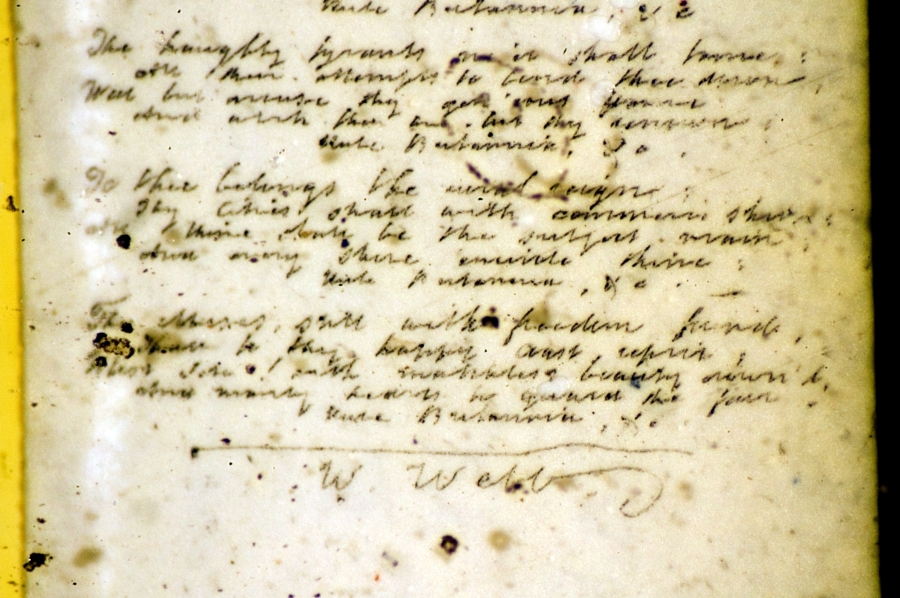 Rule Britannia, &c
The haughty tyrants ne'er shall tame:
All their attempts to bend thee down
Will but arouse thy gen'rous flame
And work their woe but thy renown
Rule Britannia, &c.
To thee belongs the rural reign;
Thy Cities shall with commerce shine;
All thine shall be the subject main
And every shore encircle thine:
Rule Britannia, &c.
The Muses, still with freedom found,
Shall to thy happy Coast repair;
Blest Isle! with matchless beauty crown'd,
And manly hearts to guard the fair
Rule Britannia, &c.
W Webb